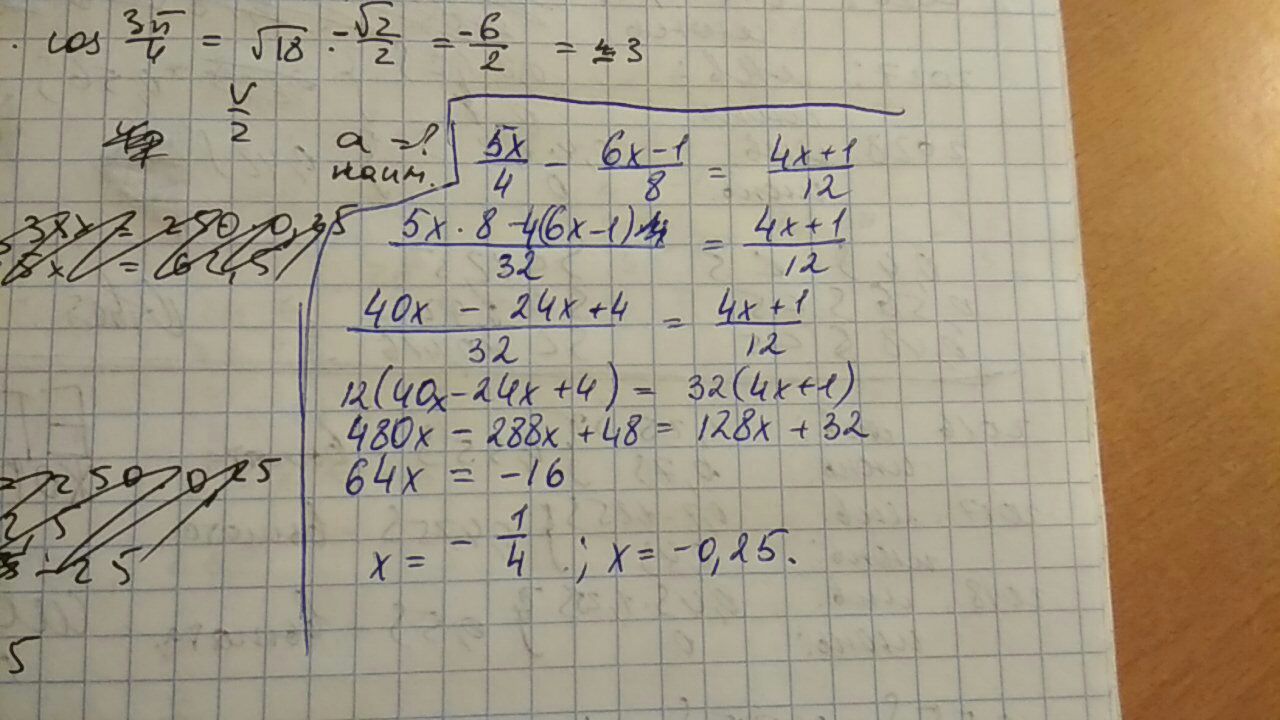 . cos 3π/4 = √18 · -√2/2 = -6/2 = -3
V/2
a = ?
наим.
5x/4 - (6x-1)/8 = (4x+1)/12
(5x · 8 - 4(6x-1))/32 = (4x+1)/12
(40x - 24x + 4)/32 = (4x+1)/12
12(40x - 24x + 4) = 32(4x+1)
480x - 288x + 48 = 128x + 32
64x = -16
x = - 1/4 ; x = -0,25.
5